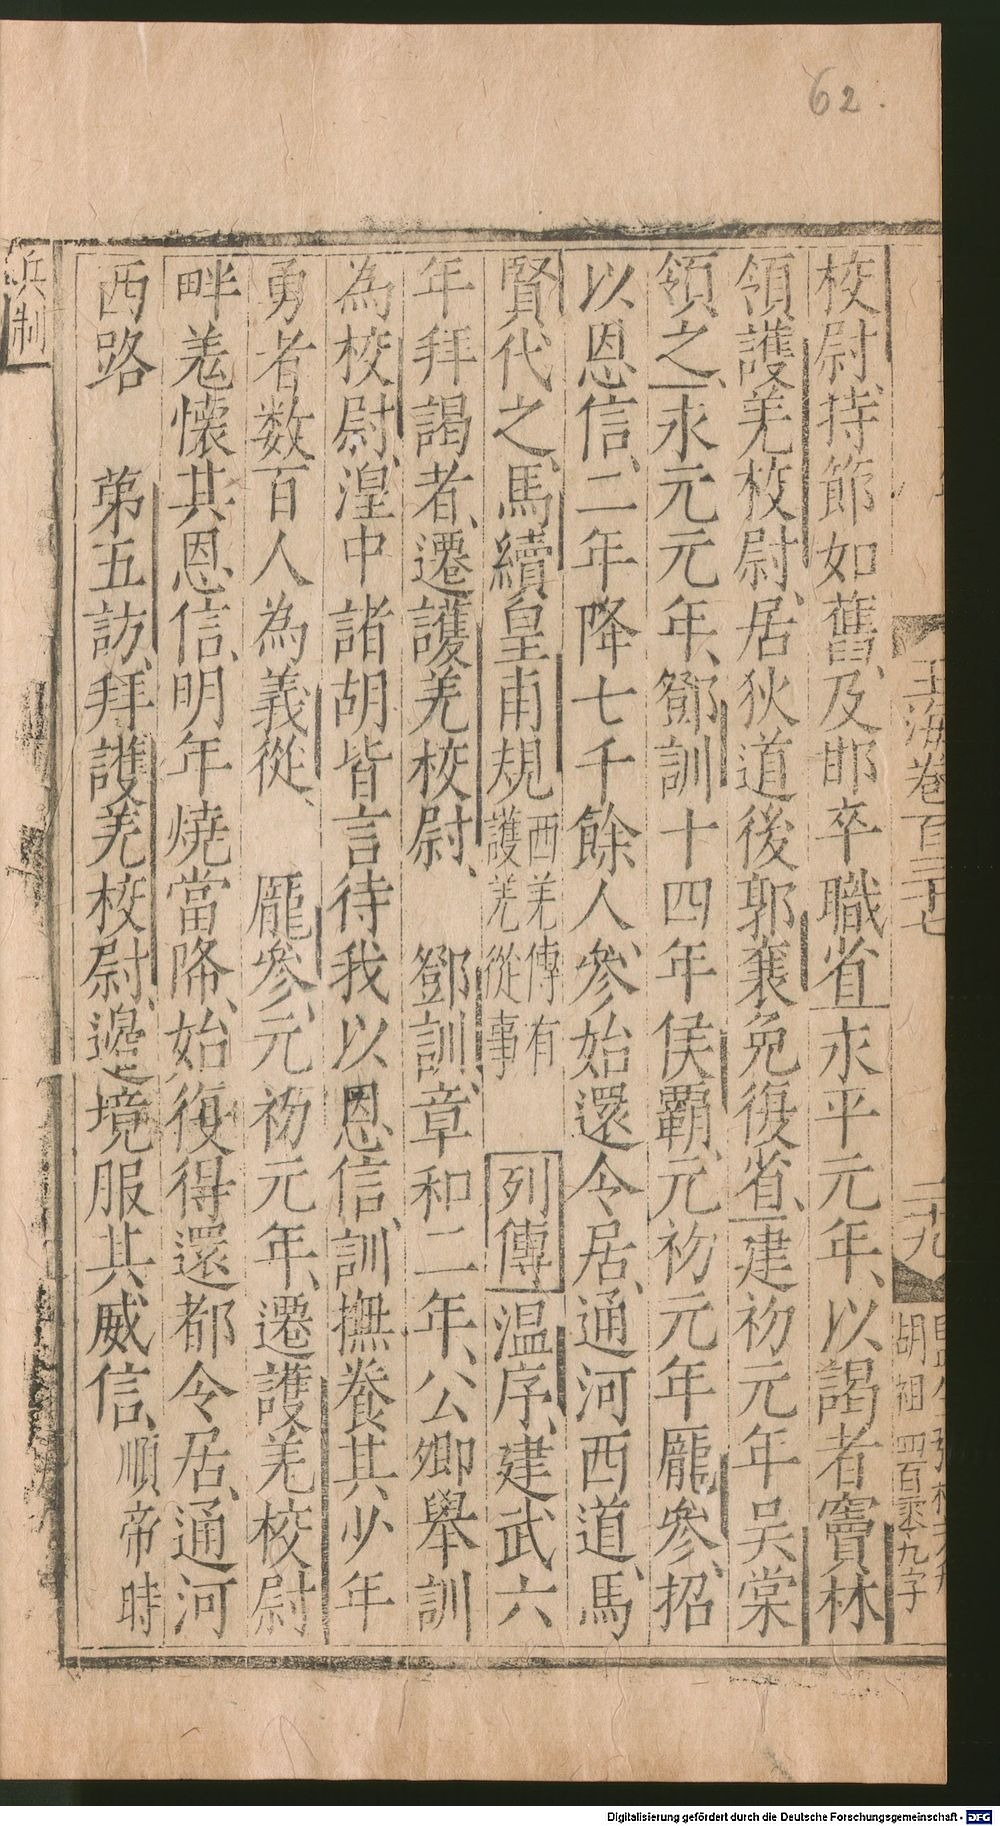 62.
校尉持節如舊及邯卒職省永平元年以謁者竇林
領護羌校尉居狄道後郭襄免復省建初元年吳棠
領之永元元年鄧訓十四年侯霸元初元年龐參招
以恩信二年降七千餘人參始還令居通河西道馬
賢代之馬續皇甫規西羌傳有護羌從事 列傳溫序建武六
年拜謁者遷護羌校尉 鄧訓章和二年公卿舉訓
為校尉湟中諸胡皆言待我以恩信訓撫養其少年
勇者数百人為義從 龐參元初元年遷護羌校尉
畔羌懷其恩信明年燒當降始復得還都令居通河
西路 第五訪拜護羌校尉邊境服其威信順帝時
兵制
玉海卷百三十七
二十九
胡祖 四百零九字
Digitalisierung gefördert durch die Deutsche Forschungsgemeinschaft - DFG